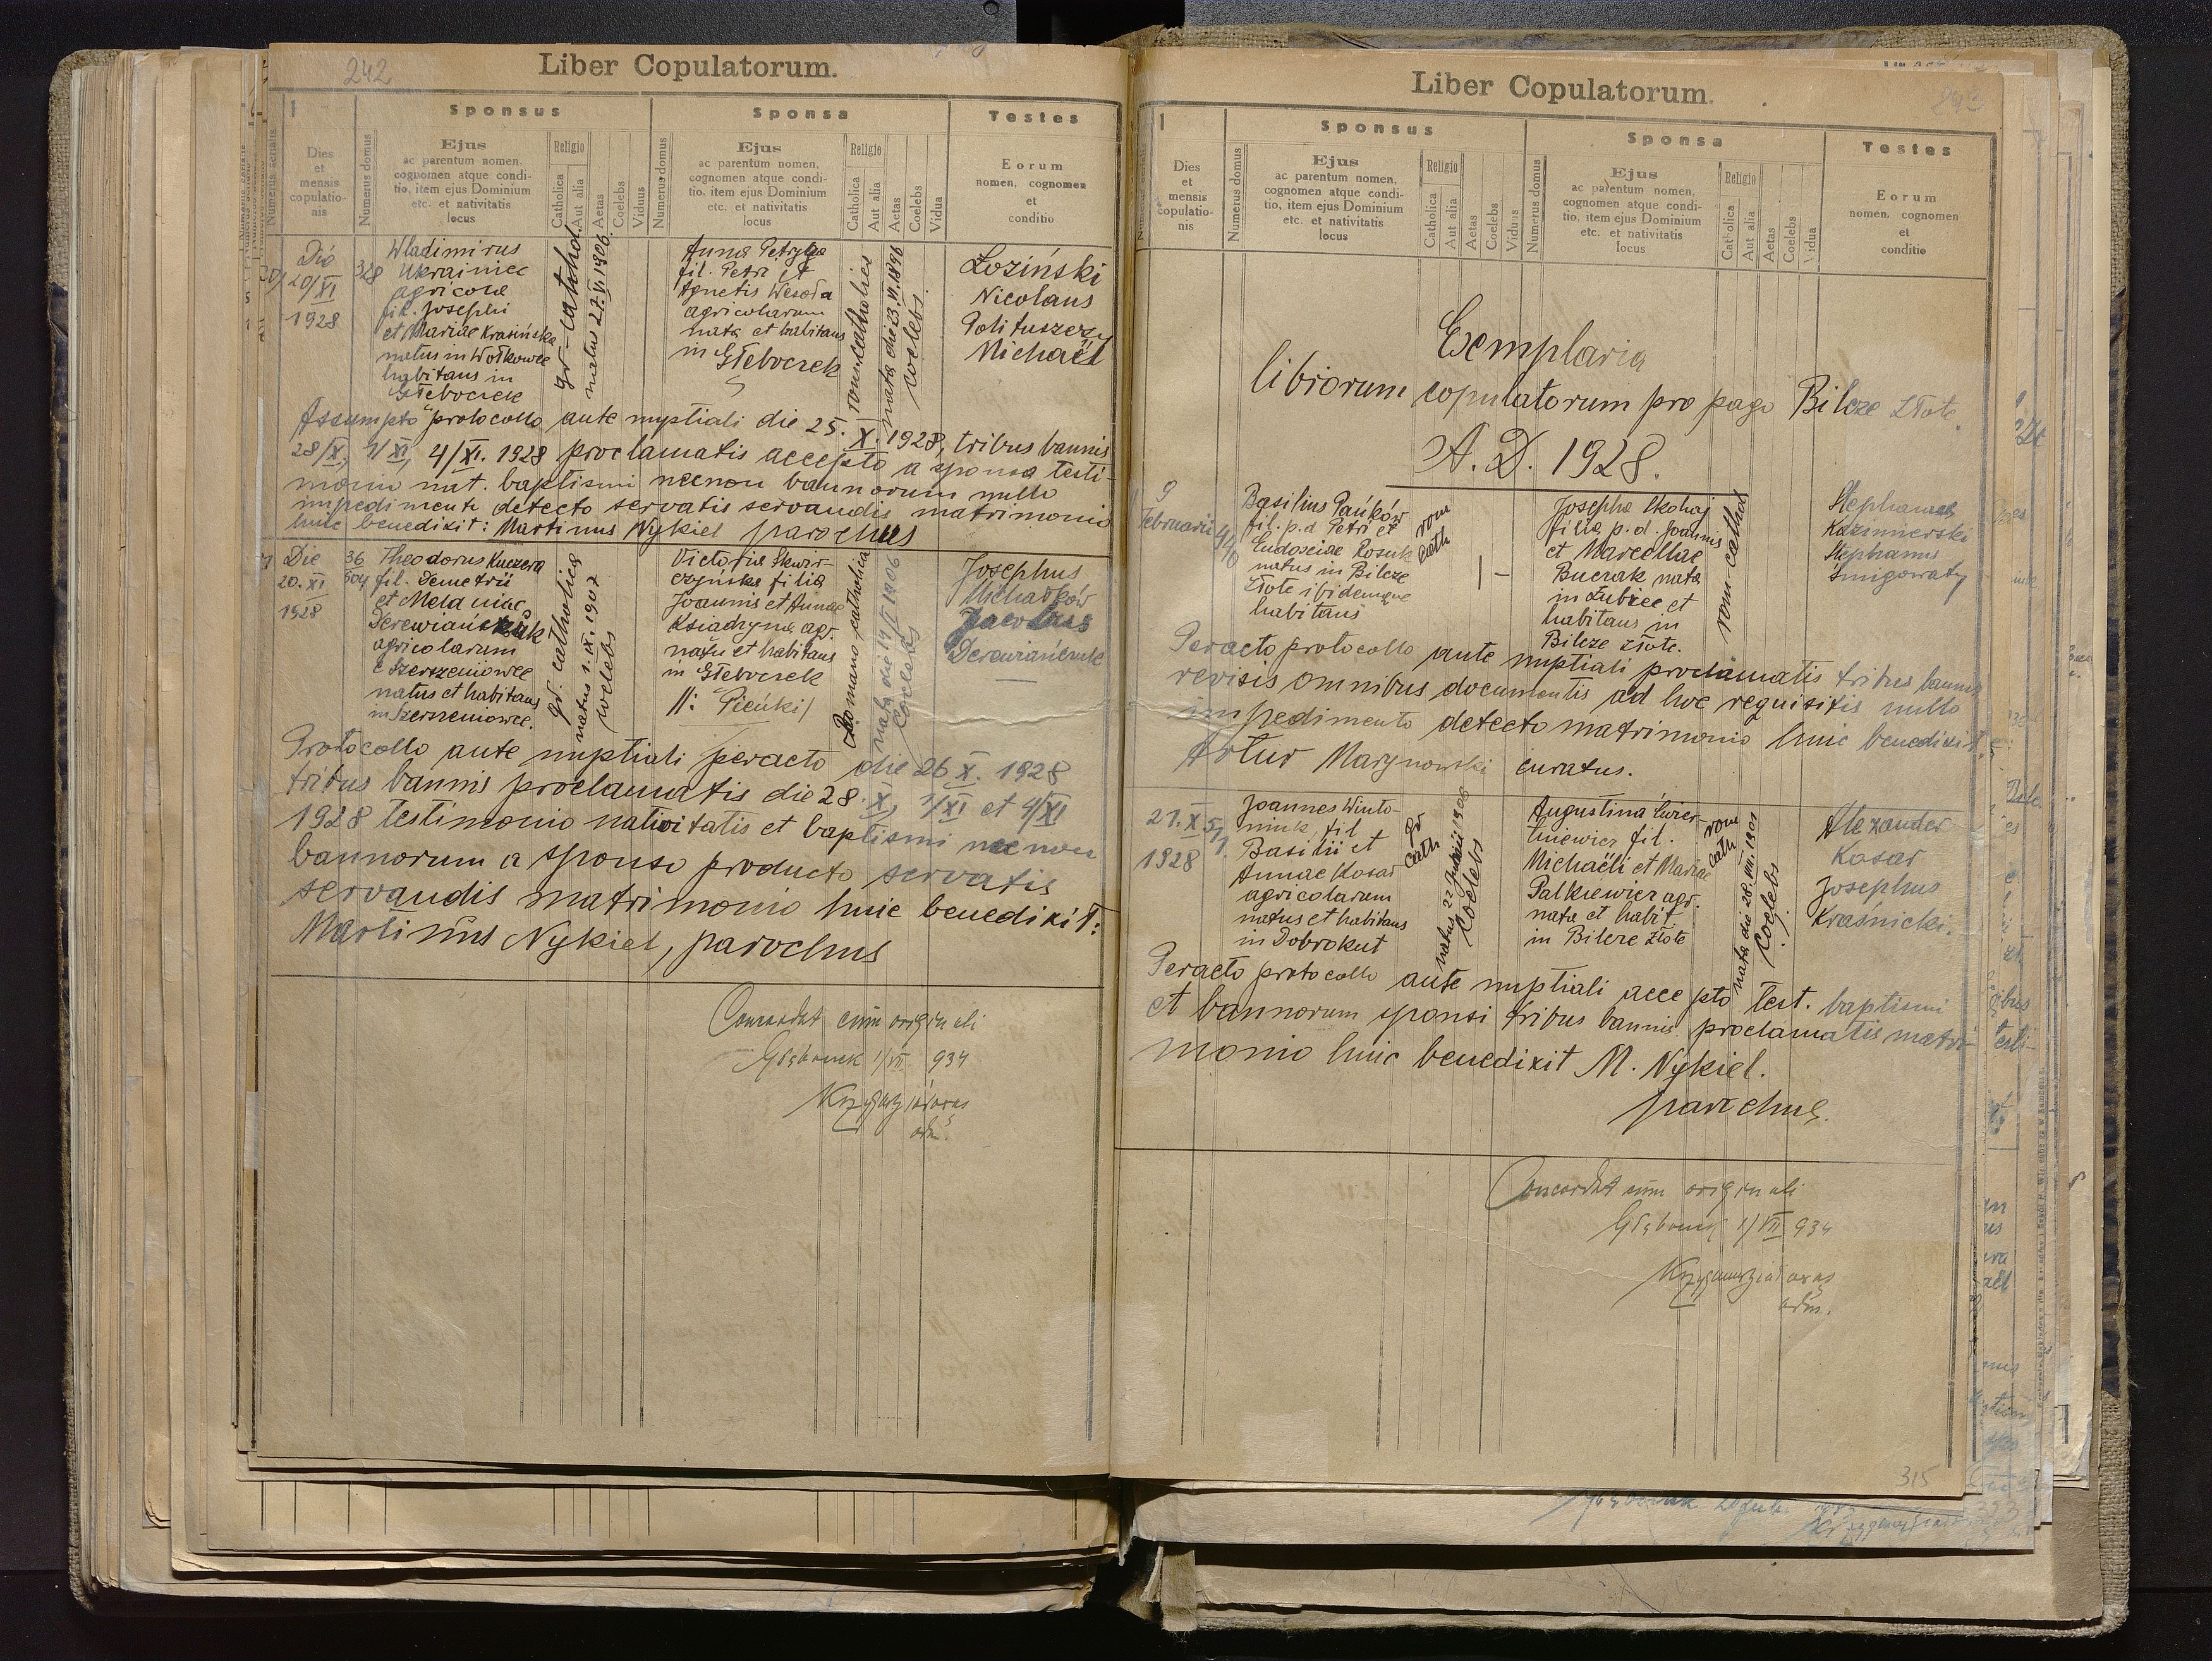 242
Liber Copulatorum.
Numerus serialis
Dies et mensis copulationis
Numerus domus
Sponsus
Ejus
ac parentum nomen,
cognomen atque condi-
tio, item ejus Dominium
etc. et nativitatis
locus
Religio
Catholica
Aut alia
Aetas
Coelebs
Viduus
Numerus domus
Sponsa
Ejus
ac parentum nomen,
cognomen atque condi-
tio, item ejus Dominium
etc. et nativitatis
locus
Religio
Catholica
Aut alia
Aetas
Coelebs
Vidua
Testes
Eorum
nomen, cognomen
et
conditio
Die
20/XI
1928
328
Wladimirus
Ukrainiec
agricola
fil. Josephi
et Mariae Krasińska
natus in Wołkowce
habitans in
Głeboczek
gr-cathol.
natus 27.VI.1906.
Anna Petryga
fil. Petri et
Agnetis Wesoła
agricolarum
nata et habitans
in Głeboczek
rom. catholica
nata die 23.VI.1896
coelebs.
Łoziński
Nicolaus
Polituszczy
Michaël
Assumpto protocollo ante nuptiali die 25. X. 1928, tribus bannis
28/X, 1/XI, 4/XI. 1928 proclamatis accepto a sponsa testi-
monio nat. baptismi necnon bannorum nullo
impedimento detecto servatis servandis matrimonio
huic benedixit: Martinus Nykiel parochus
Die
20. XI
1928
36
504
Theodorus Kuczera
fil. Demetrii
et Melaniae
Derewiańczuk
agricolarum
e Szerszeniowce
natus et habitans
in Szerszeniowce.
gr. catholica
natus 1. IX. 1907
coelebs
Victoria Skwir-
czyńska filia
Joannis et Annae
Ksiądzyna agr.
nata et habitans
in Głeboczek
//: Pieńki/
Romano catholica
coelebs
Josephus
Michałków
Jacobus
Derewiańczuk
Protocollo ante nuptiali peracto die 26 X. 1928
tribus bannis proclamatis die 28. X, 1/XI et 4/XI
1928 testimonio nativitatis et baptismi necnon
bannorum a sponso producto servatis
servandis matrimonio huic benedixit:
Martinus Nykiel, parochus
Concordat cum originali
Głęboczek 1/VII 934
adm.
Liber Copulatorum.
Dies
et
mensis
copulatio-
nis
Numerus domus
Sponsus
Ejus
ac parentum nomen,
cognomen atque condi-
tio, item ejus Dominium
etc. et nativitatis
locus
Religio
Catholica
Aut alia
Aetas
Coelebs
Viduus
Numerus domus
Sponsa
Ejus
ac parentum nomen,
cognomen atque condi-
tio, item ejus Dominium
etc. et nativitatis
locus
Religio
Catholica
Aut alia
Aetas
Coelebs
Vidua
Testes
Eorum
nomen, cognomen
et
conditio
Exemplaria
librorum copulatorum pro pago Bilcze Złote.
A. D. 1928.
9
Februarii
Basilius Pańków
fil. p.d. Petri et
Eudoxiae Rosuk
natus in Bilcze
Złote ibidemque
habitans
rom
cath
Josepha Skohaj
filia p.d. Joannis
et Marcellae
Buczak nata
in Łubiec et
habitans in
Bilcze Złote.
rom-cathol
Stephanus
Kazimierski
Stephanus
Śmigowaty
Peracto protocollo ante nuptiali proclamatis tribus bannis
revisis omnibus documentis ad hoc requisitis nullo
impedimento detecto matrimonio huic benedixit
Artur Marynowski curatus.
21. X
1928
51
Joannes Winto-
niuk, fil
Basilii et
Annae Kosar
agricolarum
natus et habitans
in Dobrokut
gr
cath
coelebs
Augustina Ćwier-
tniewicz fil.
Michaëli et Mariae
Palkiewicz agr.
nata et habit
in Bilcze Złote
rom
cath
nata die 28. VIII. 1901
coelebs
Alexander
Kosar
Josephus
Kraśnicki.
Peracto protocollo ante nuptiali accepto test. baptismi
et bannorum sponsi tribus bannis proclamatis matri-
monio huic benedixit M. Nykiel.
parochus.
Concordat cum originali
Głęboczek 1/VII 934
adm.
315